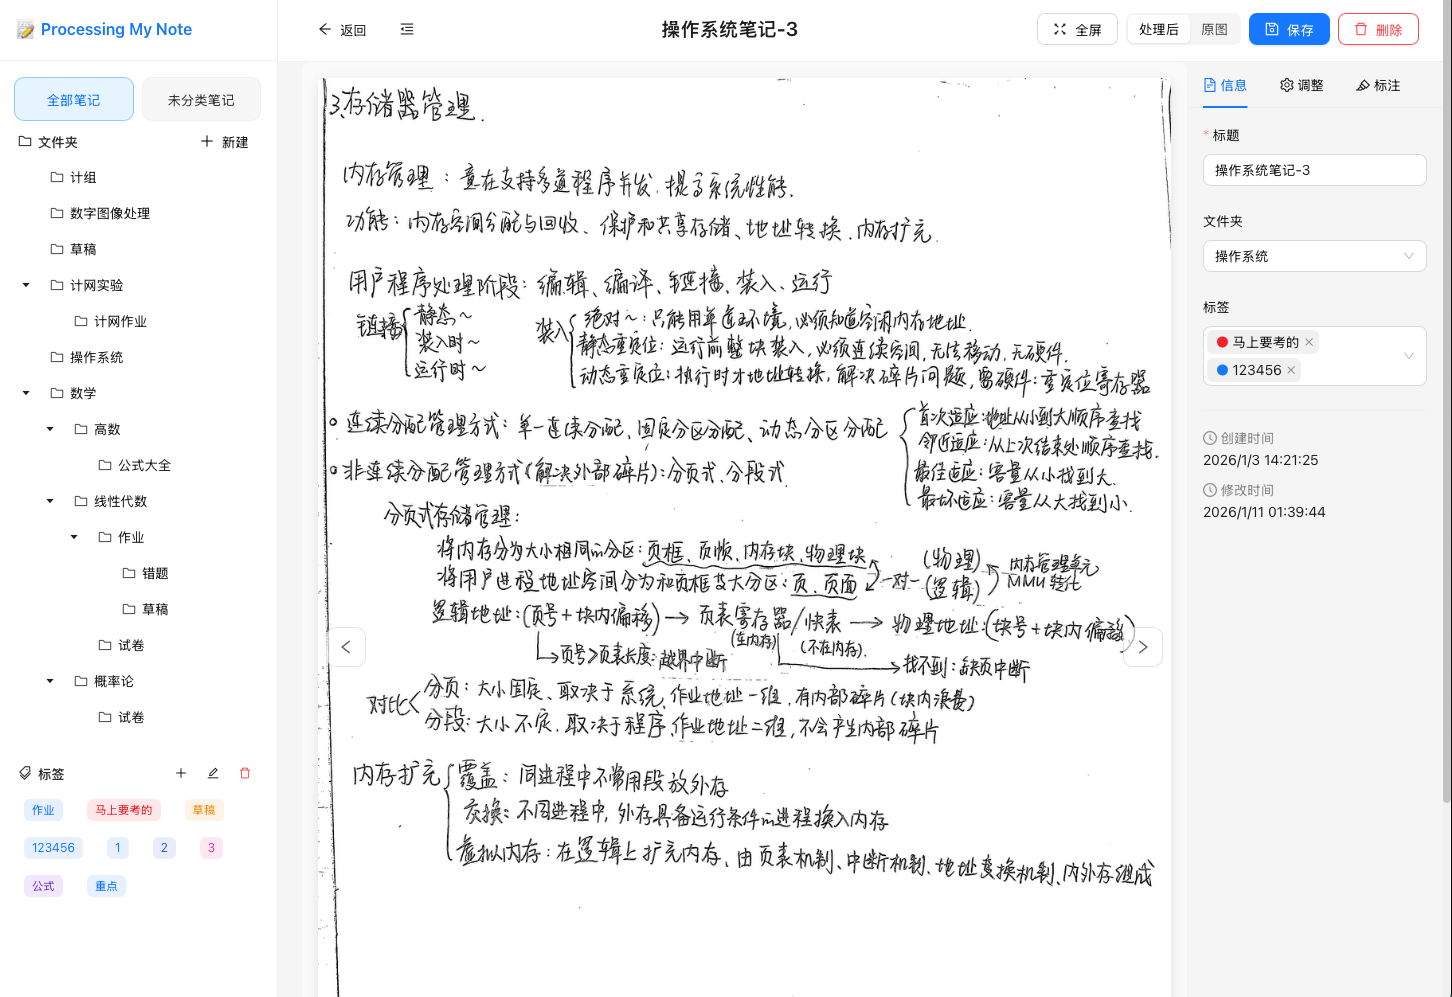 Processing My Note
返回
操作系统笔记-3
全屏
处理后
原图
保存
删除
全部笔记
未分类笔记
文件夹
新建
计组
数字图像处理
草稿
计网实验
计网作业
操作系统
数学
高数
公式大全
线性代数
作业
错题
草稿
试卷
概率论
试卷
标签
作业
马上要考的
草稿
123456
1
2
3
公式
重点
3.存储器管理.
内存管理：意在支持多道程序并发.提高系统性能.
功能：内存空间分配与回收、保护和共享存储、地址转换.内存扩充.
用户程序处理阶段：编辑、编译、链接、装入、运行
链接
静态~
装入时~
运行时~
装入
绝对~：只能用单道环境,必须知道空闲内存地址.
静态重定位：运行前整块装入,必须连续空间,无法移动,无硬件.
动态重定位：执行时才地址转换,解决碎片问题,需硬件：重定位寄存器
连续分配管理方式：单一连续分配、固定分区分配、动态分区分配
首次适应：地址从小到大顺序查找
邻近适应：从上次结束处顺序查找.
最佳适应：容量从小找到大.
最坏适应：容量从大找到小.
非连续分配管理方式(解决外部碎片)：分页式、分段式
分页式存储管理：
将内存分为大小相同的分区：页框、页帧、内存块、物理块
将用户进程地址空间分为和页框等大分区：页、页面
一对一
(物理)
(逻辑)
内存管理单元
MMU 转化
逻辑地址：(页号+块内偏移)→页表寄存器/快表→物理地址：(块号+块内偏移)
(在内存)
(不在内存).
页号≥页表长度：越界中断
找不到：缺页中断
对比
分页：大小固定、取决于系统、作业地址一维,有内部碎片(块内浪费)
分段：大小不定.取决于程序.作业地址二维,不会产生内部碎片
内存扩充
覆盖：同进程中不常用段放外存
交换：不同进程中,外存具备运行条件的进程换入内存
虚拟内存：在逻辑上扩充内存、由页表机制、中断机制、地址变换机制、内外存组成
信息
调整
标注
* 标题
操作系统笔记-3
文件夹
操作系统
标签
马上要考的
123456
创建时间
2026/1/3 14:21:25
修改时间
2026/1/11 01:39:44